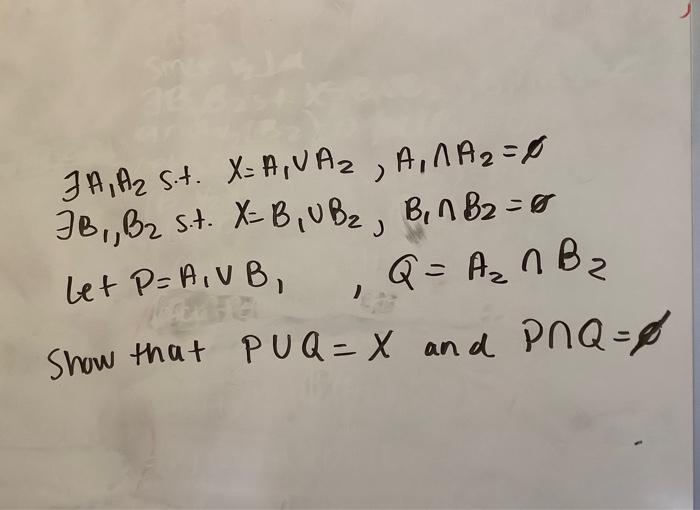 ∃A₁A₂ s.t. X=A₁∪A₂, A₁∩A₂=∅
∃B₁,B₂ s.t. X=B₁∪B₂, B₁∩B₂=∅
Let P=A₁∪B₁, Q=A₂∩B₂
Show that P∪Q=X and P∩Q=∅